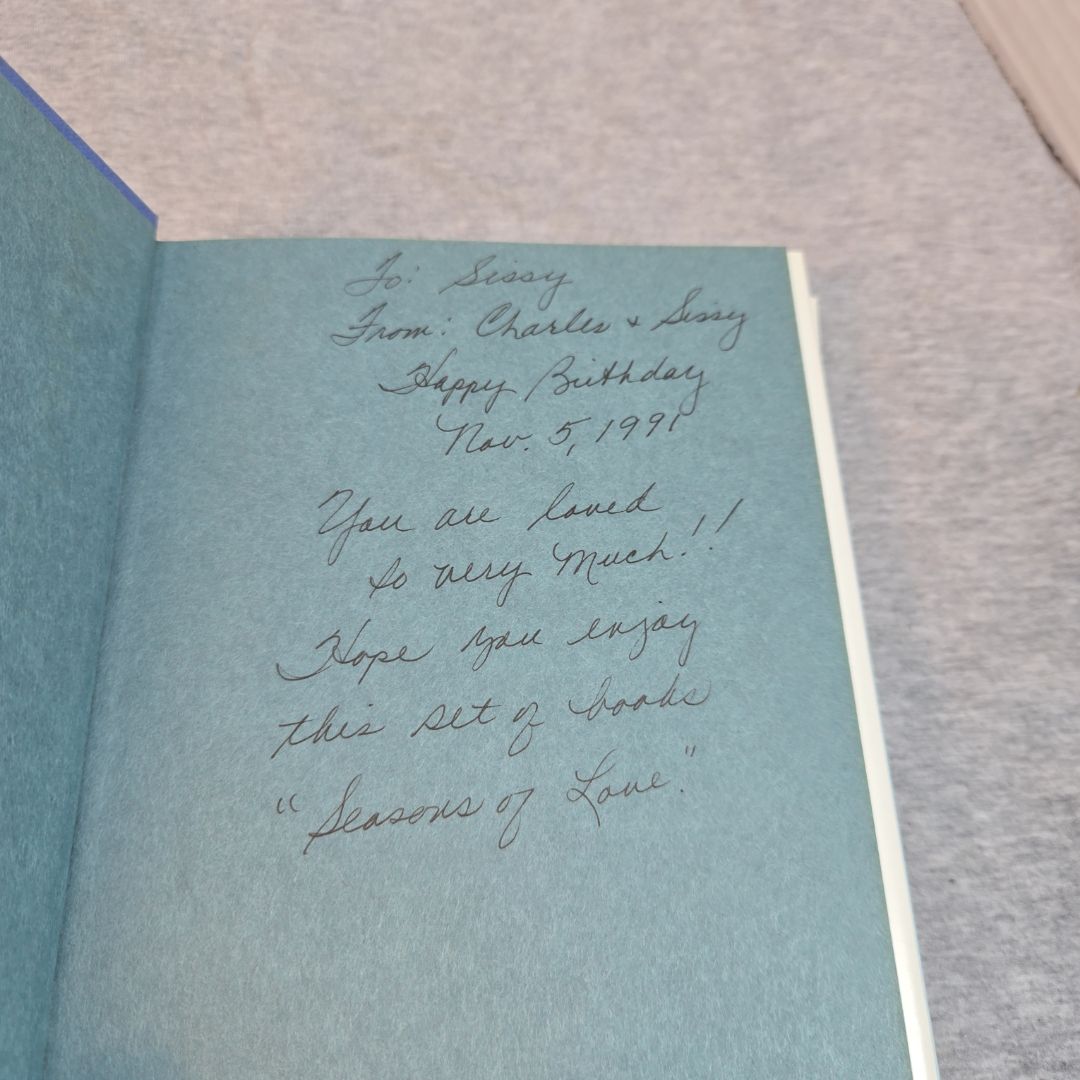 To: Sissy
From: Charles + Sissy
Happy Birthday
Nov. 5, 1991
You are loved
so very much!!
Hope you enjoy
this set of books
"Seasons of Love."